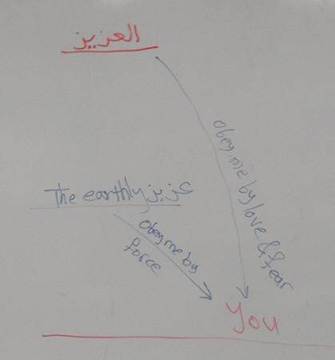 العزيز
obey me by love & fear
The earthly عزيز
obey me by
force
You